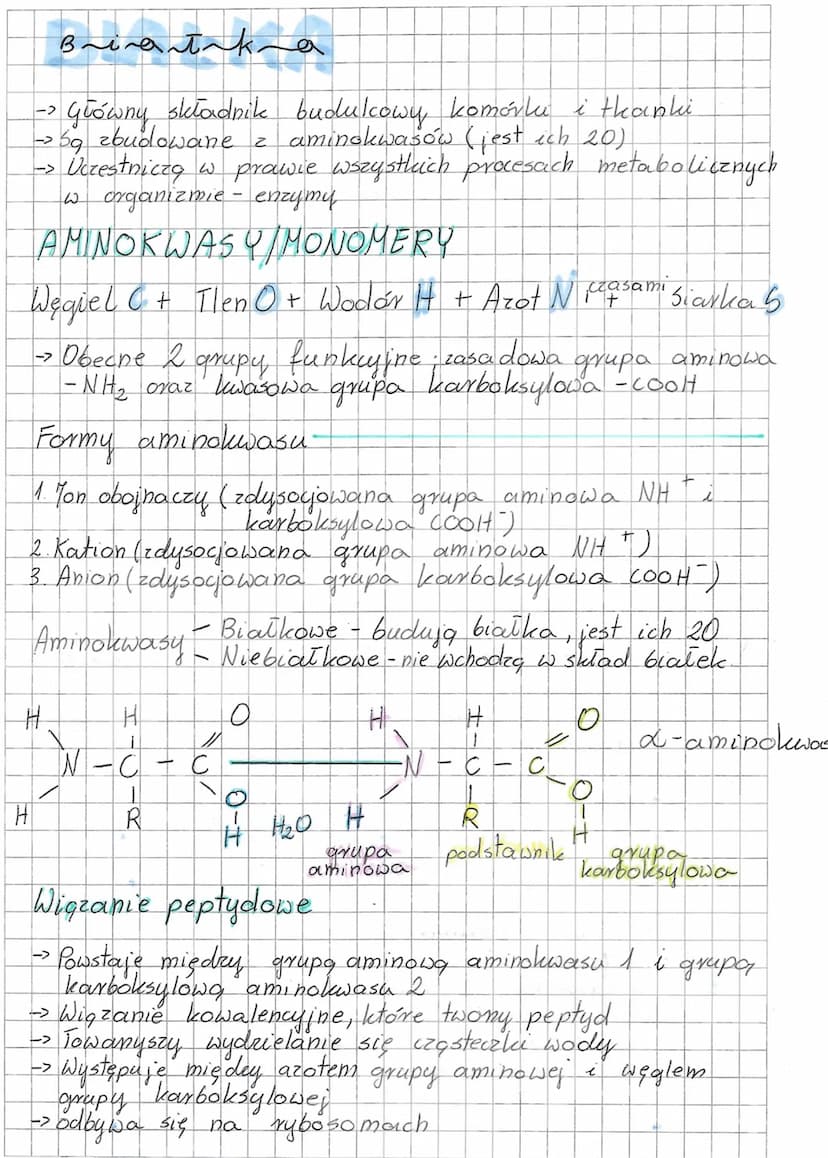 BIAŁKA
Białka
-> Główny składnik budulcowy komórki i tkanki
-> Są zbudowane z aminokwasów (jest ich 20)
-> Uczestniczą w prawie wszystkich procesach metabolicznych
w organizmie - enzymy
AMINOKWASY/MONOMERY
Węgiel C + Tlen O + Wodór H + Azot N i czasami + Siarka S
-> Obecne 2 grupy funkcyjne: zasadowa grupa aminowa
-NH₂ oraz kwasowa grupa karboksylowa -COOH
Formy aminokwasu
1. Jon obojnaczy (zdysocjowana grupa aminowa NH⁺ i
karboksylowa COOH⁻)
2. Kation (zdysocjowana grupa aminowa NH⁺)
3. Anion (zdysocjowana grupa karboksylowa COOH⁻)
Aminokwasy - Białkowe - budują białka, jest ich 20
- Niebiałkowe - nie wchodzą w skład białek
H H O H H O
α-aminokwas
N - C - C N - C - C
H R O H R O
H H₂O H
grupa aminowa
podstawnik
grupa karboksylowa
Wiązanie peptydowe
-> Powstaje między grupą aminową aminokwasu 1 i grupą
karboksylową aminokwasu 2
-> Wiązanie kowalencyjne, które tworzy peptyd
-> Towarzyszy wydzielanie się cząsteczki wody
-> Występuje między azotem grupy aminowej i węglem
grupy karboksylowej
-> odbywa się na rybosomach